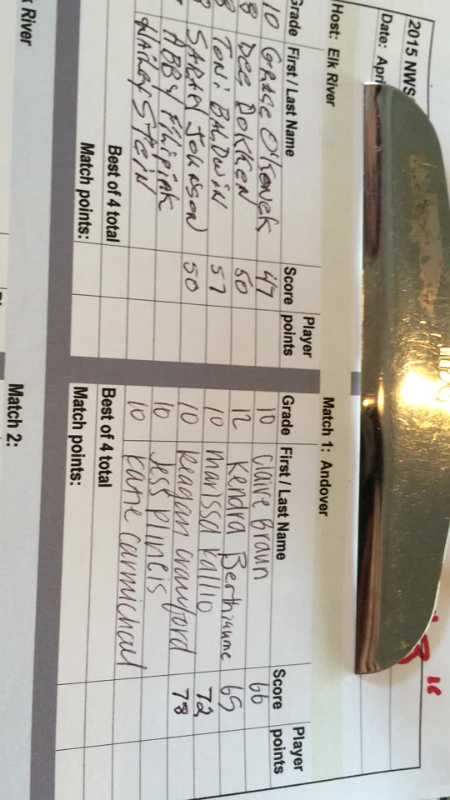 2015 NWS
Date: Apri
Host: Elk River
Grade First / Last Name Score Player points
10 Grace O'Konek 47
8 Dee Dokken 50
8 Toni Baldwin 57
8 Sarah Johnson 50
Abby Filipiak
Hailey Stein
Best of 4 total
Match points:
Match 1: Andover
Grade First / Last Name Score Player points
10 Claire Braun 66
12 Kendra Berthiaume 69
10 Marissa Kallio 72
10 Reagan Crawford 78
10 Jess Plineis
10 Katie Carmichael
Best of 4 total
Match points:
River
Match 2: